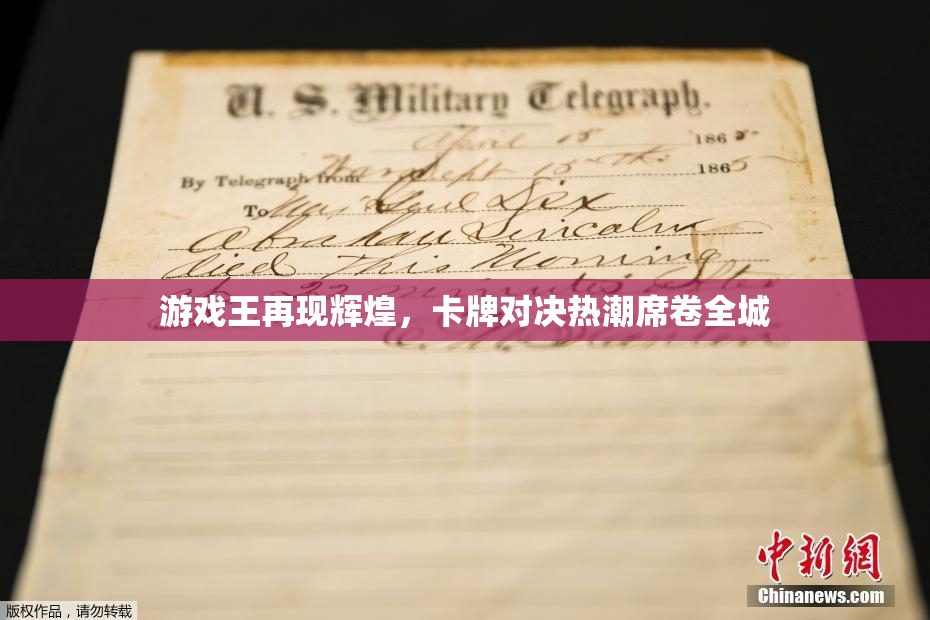 U. S. Military Telegraph.
April 15 1865
By Telegraph from War Dept 15th 1865
To Maj Genl Dix
Abraham Lincoln
died This Morning
at 22 minutes after
游戏王再现辉煌，卡牌对决热潮席卷全城
E. M. Stanton
中新网
Chinanews.com
版权作品，请勿转载